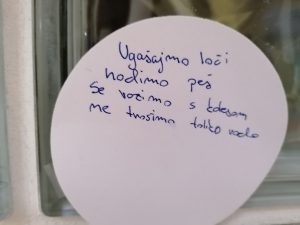 Ugašajmo luči
hodimo peš
se vozimo s kolesom
ne trosimo toliko vode